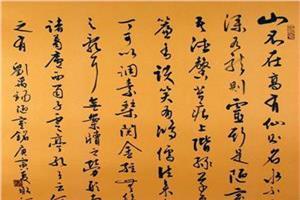 山不在高有仙则名水不
深有龙则灵斯是陋室
德馨苔痕上阶绿草
谈笑有鸿儒往来
可以调素琴阅金经无丝
之乱耳无案牍之劳形
诸葛庐西蜀子云亭孔子云何
陋之有 刘禹锡陋室铭